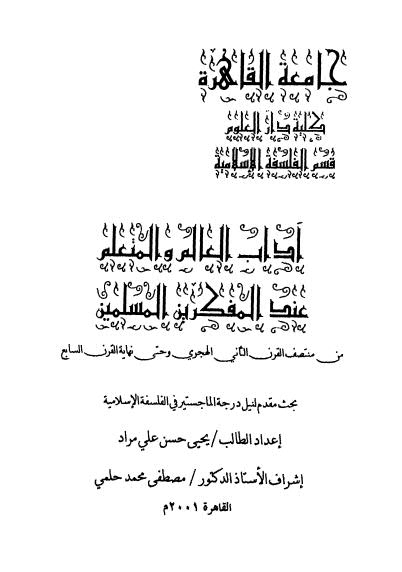 جامعة القاهرة
كلية دار العلوم
قسم الفلسفة الإسلامية
آداب العالم والمتعلم
عند المفكرين المسلمين
من منتصف القرن الثاني الهجري وحتى نهاية القرن السابع
بحث مقدم لنيل درجة الماجستير في الفلسفة الإسلامية
إعداد الطالب / يحيى حسن علي مراد
إشراف الأستاذ الدكتور / مصطفى محمد حلمي
القاهرة ٢٠٠١م